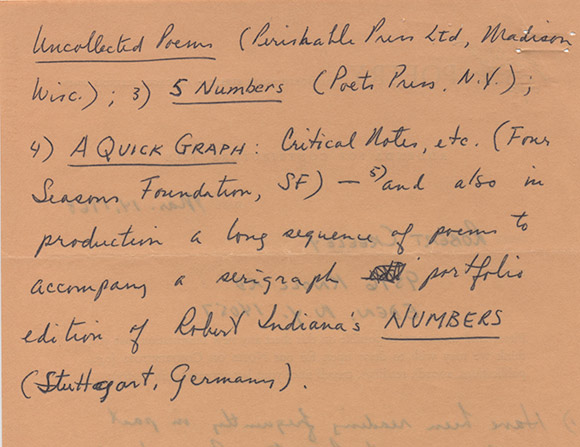 Uncollected Poems (Perishable Press Ltd, Madison
Wisc.); 3) 5 Numbers (Poets Press, N.Y.);
4) A QUICK GRAPH: Critical Notes, etc. (Four
Seasons Foundation, SF) — 5) and also in
production a long sequence of poems to
accompany a serigraph portfolio
edition of Robert Indiana's NUMBERS
(Stuttgart, Germany).